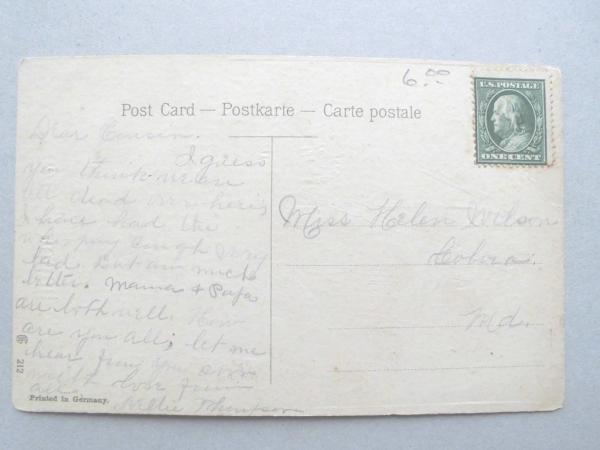 6.00
U.S. POSTAGE
ONE CENT
Post Card — Postkarte — Carte postale
Dear Cousin.
I guess
you think we are
all dead over here,
I have had the
whooping cough very
bad but am much
better. Mama & Papa
are both well. How
are you all, let me
hear from you soon
with love from
all.
Nellie Thompson
Miss Helen Wilson
Md.
212
Printed in Germany.